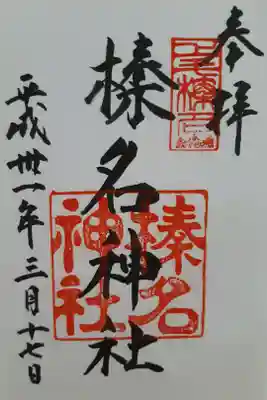 奉拝
榛名神社
榛名
神社
平成卅一年三月十七日